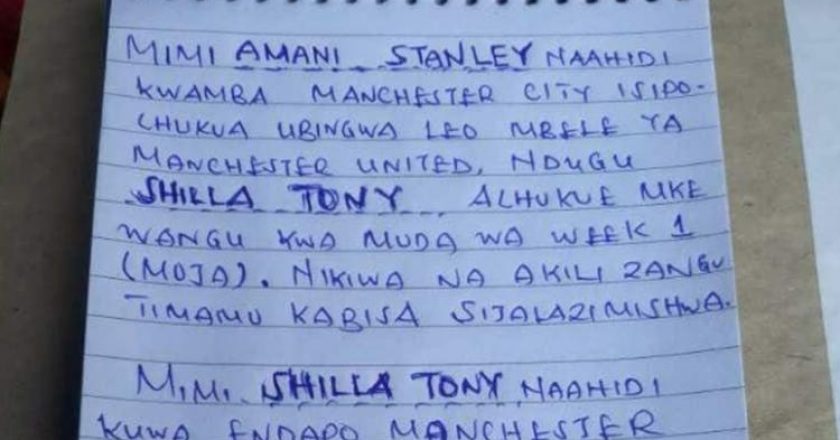 MIMI AMANI STANLEY NAAHIDI
KWAMBA MANCHESTER CITY ISIPO-
CHUKUA UBINGWA LEO MBELE YA
MANCHESTER UNITED, NDUGU
SHILLA TONY ALHUKUE MKE
WANGU KWA MUDA WA WEEK 1
(MOJA). NIKIWA NA AKILI ZANGU
TIMAMU KABISA SIJALAZIMISHWA.
MIMI SHILLA TONY NAAHIDI
KUWA ENDAPO MANCHESTER